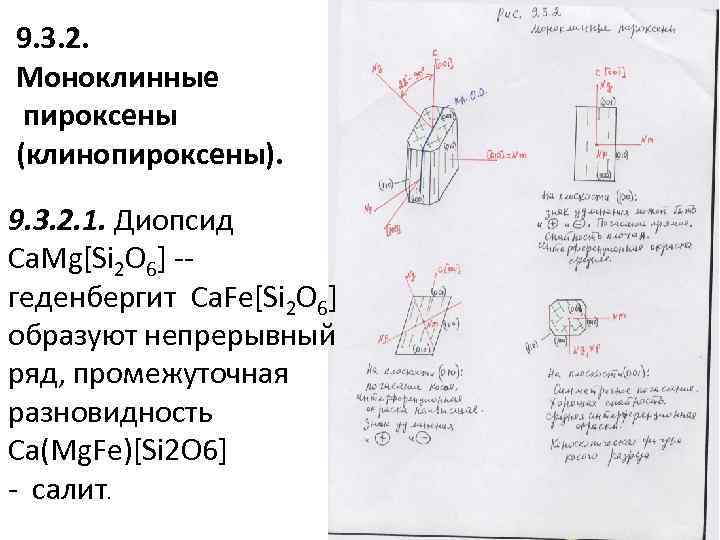 9.3.2.
Моноклинные
пироксены
(клинопироксены).
9.3.2.1. Диопсид
Ca.Mg[Si2O6] --
геденбергит Ca.Fe[Si2O6]
образуют непрерывный
ряд, промежуточная
разновидность
Ca(Mg.Fe)[Si2O6]
- салит.
Рис. 9.3.2
Моноклинные пироксены
c
[001]
Ng
пл. О.О.
(001)
[010]=Nm
(110)
(100)
Np
c[001]
Ng
(101)
Nm
Np
(010)
На плоскости (100):
знак удлинения может быть
и ⊕ и ⊖. Погасание прямое.
Спайность плохая.
Интерференционная окраска
средняя.
Ng
c[001]
(001)
Nm
(100)
Np
(010)
На плоскости (010):
погасание косое.
Интерференционная
окраска наивысшая.
Знак удлинения
и ⊕ и ⊖
(100)
Nm
(010)
(110)
Ng, Np
На плоскости (001):
Симметричное погасание.
Хорошая спайность.
Средняя интерференционная
окраска.
Коноскопическая фигура
косого разреза